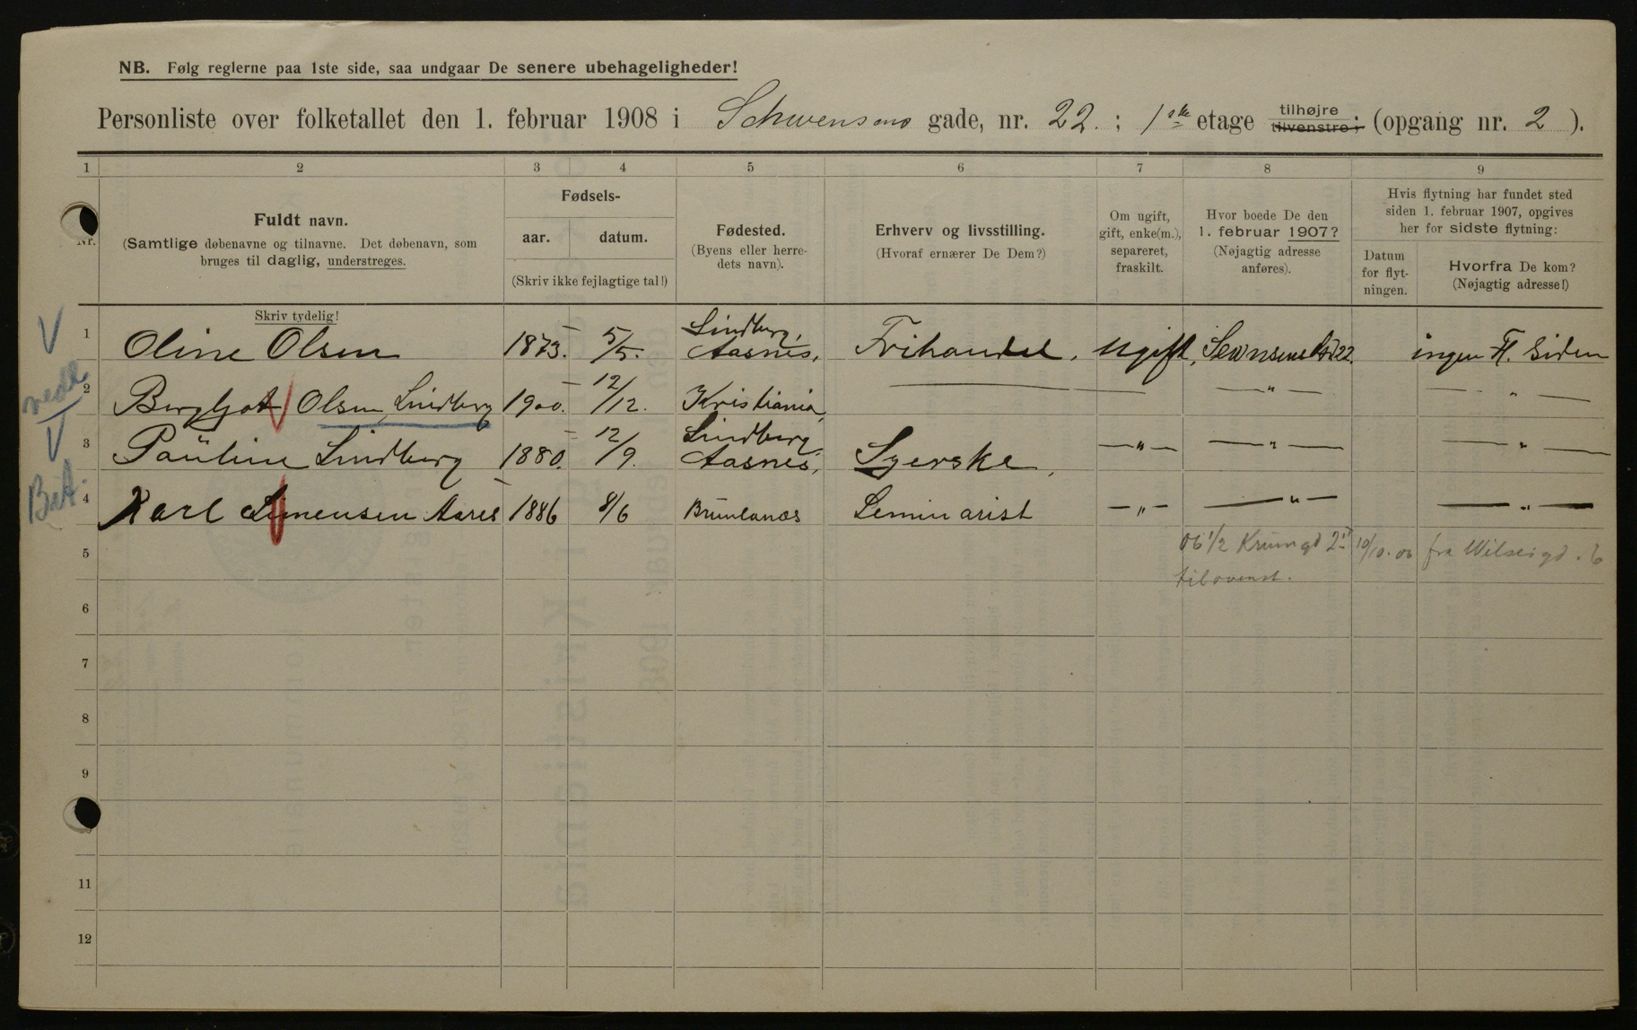 NB. Følg reglerne paa 1ste side, saa undgaar De senere ubehageligheder!
Personliste over folketallet den 1. februar 1908 i Schwensens gade, nr. 22. ; 1ste etage tilhøjre tilvenstre; (opgang nr. 2 ).
1 2 3 4 5 6 7 8 9
Nr.
Fuldt navn.
(Samtlige døbenavne og tilnavne. Det døbenavn, som
bruges til daglig, understreges.
Fødsels-
aar. datum.
(Skriv ikke fejlagtige tal!)
Fødested.
(Byens eller herre-
dets navn).
Erhverv og livsstilling.
(Hvoraf ernærer De Dem?)
Om ugift,
gift, enke(m.),
separeret,
fraskilt.
Hvor boede De den
1. februar 1907?
(Nøjagtig adresse
anføres).
Hvis flytning har fundet sted
siden 1. februar 1907, opgives
her for sidste flytning:
Datum
for flyt-
ningen.
Hvorfra De kom?
(Nøjagtig adresse!)
Skriv tydelig!
1 Oline Olsen 1873. 5/5. Lindberg, Aasnes, Frihandel. Ugift, 22. ingen Fl. Siden
2 Bergljot Olsen Lindberg 1900. 12/12. Kristiania, — — " — — " —
3 Pauline Lindberg 1880. 12/9. Lindberg, Aasnes, Syerske, — " — — " — — " —
4 Karl Aares 1886 8/6 Brunlanæs Seminarist — " — — " — — " —
5 06 1/2 Krumgd 2 10/10. 06 fra Wilsesgd. 6
tilvenst.
6
7
8
9
11
12